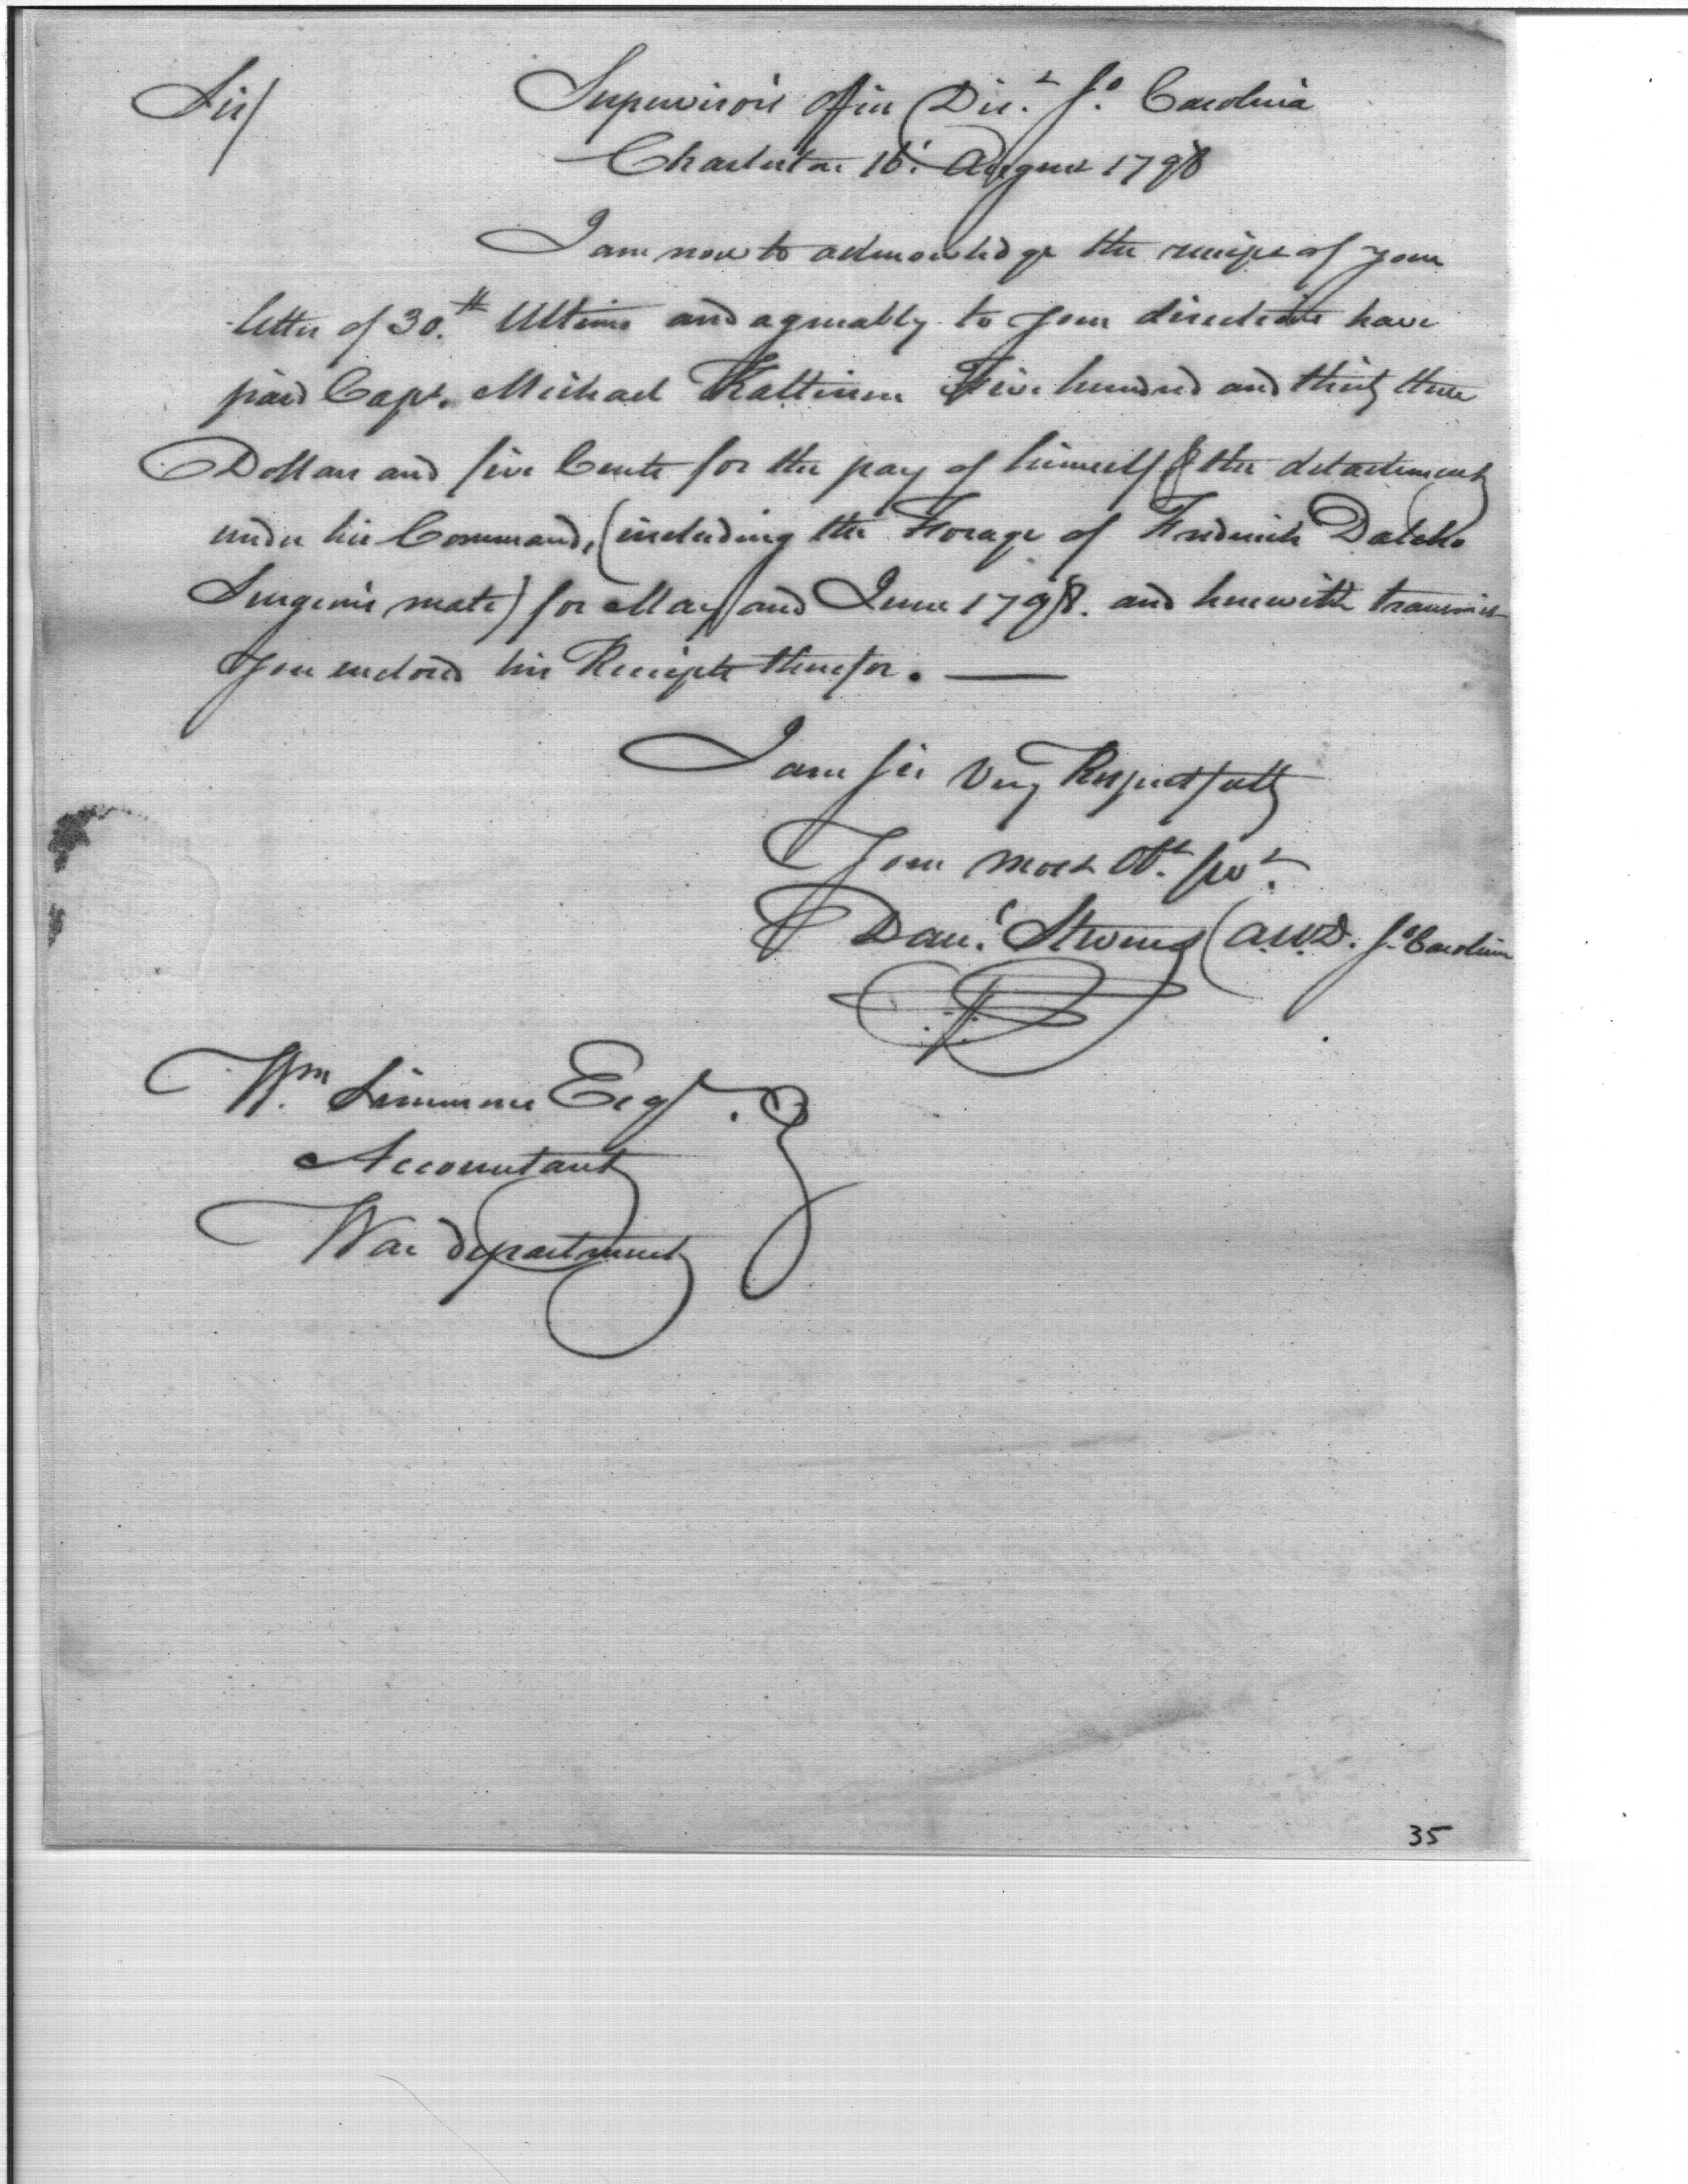 Sir/
Supervisors Office Dist. So. Carolina
Charleston 16. August 1798
I am now to acknowledge the receipt of your
letter of 30.th Ultimo and agreeably to your directions have
paid Capt. Michael Kalteisen Five hundred and thirty three
Dollars and five Cents for the pay of himself & the detachment
under his Command, (including the Forage of Frederick Dalcho
Surgeons mate) for May and June 1798. and herewith transmit
you enclosed his Receipts therefor.
I am Sir Very Respectfully
Your most Obt. Sert.
Danl. Stevens A.W.D. So. Carolina
Wm. Simmons Esqr.
Accountant
War department
35